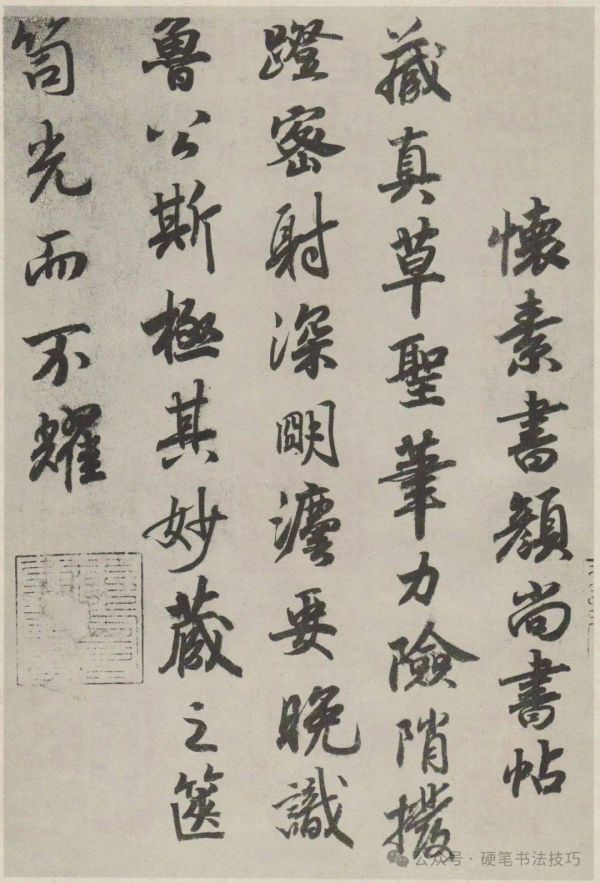 懷素書顏尚書帖
藏真草聖筆力險陗撥
蹬密射深明瀍要晚識
魯公斯極其妙蔵之篋
笥光而不耀
公众号·硬笔书法技巧